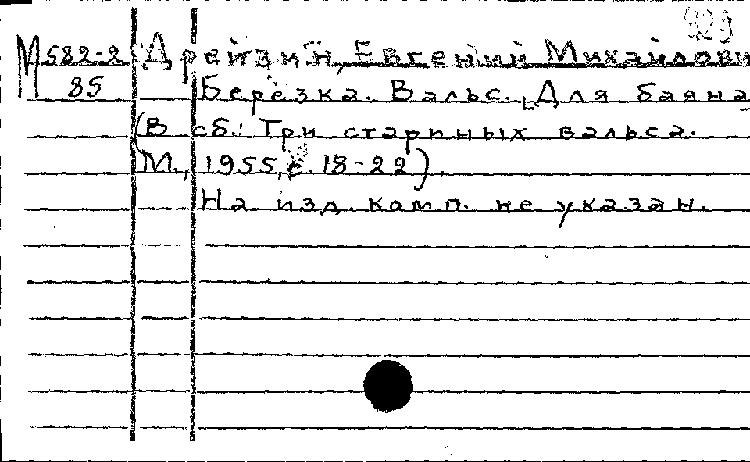 929
М 582-2 Дрейзин, Евгений Михайлови
85 Берёзка. Вальс. [Для баяна
(В сб.: Три старинных вальса.
М., 1955, с. 18-22).
На изд. комп. не указан.